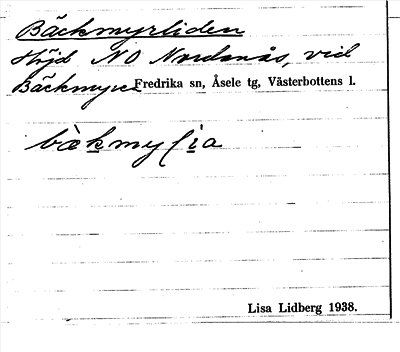 Bäckmyrliden
Höjd NO Nordanås, vid
Bäckmyre Fredrika sn, Åsele tg, Västerbottens l.
Lisa Lidberg 1938.